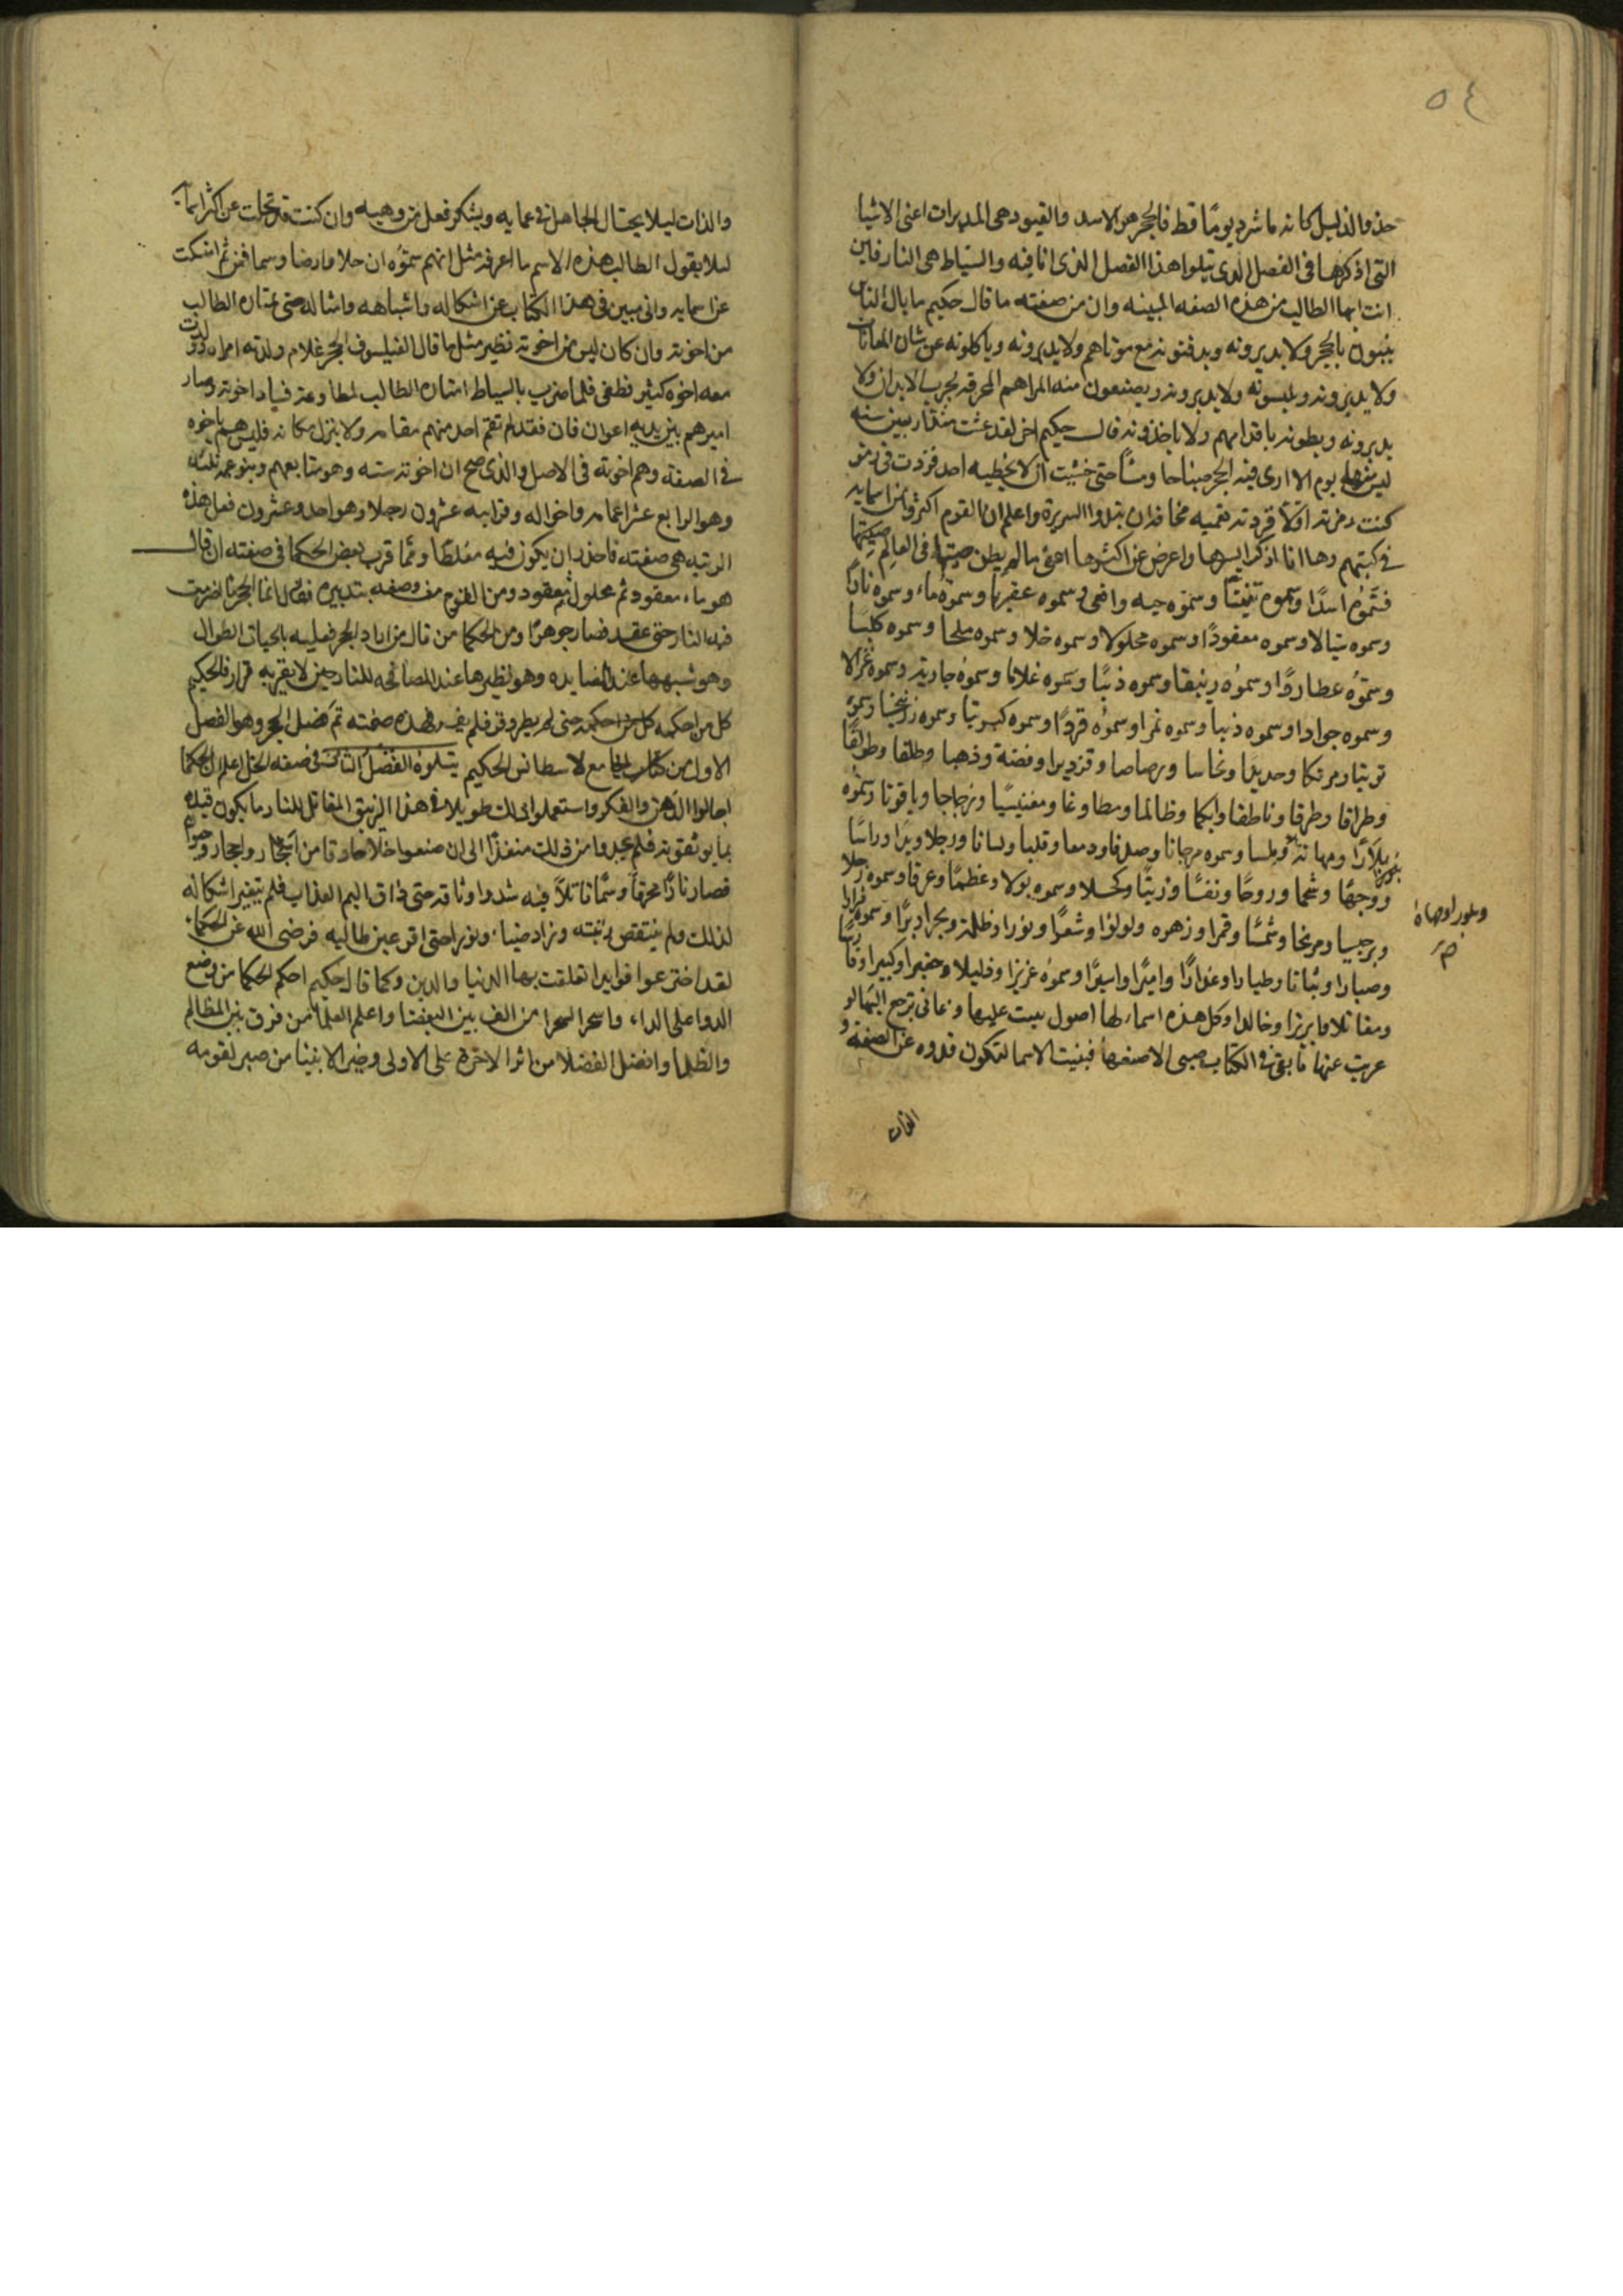 ٥٤
حذو الذليل كانه ما شرد يومًا قط فالحجر هو الاسد والقيود هى المدبرات اعنى الاشيا
التى اذكرها فى الفصل الذى يتلوا هذا الفصل الذى انا فيه والسياط هى النار فاين
انت ايها الطالب من هذه الصفه المبينه وان من صفته ما قال حكيم ما بال الناس
يبنون بالحجر ولا يدبرونه ويدفنونه مع موتاهم ولا يدبرونه وياكلونه عن شان
ولا يدبرونه ويلبسونه ولا يدبرونه ويصنعون منه المراهم المحرقه لجرب الابدان ولا
يدبرونه ويطونه باقدامهم ولا ياخذونه قال حكيم اخر لقد عشت سنه
ليس منها يوم الا ارى فيه الحجر صباحا ومسًا حتى خشيت ان لا يخطيه احد فزدت فى رمز
كنت رمزته اولًا فزدته تعميه مخافه ان تبدوا السريرة واعلم ان القوم اكثروا من اسمايه
فى كتبهم وها انا اذكر ايسرها واعرض عن اكثرها اعنى مالم يطن صيتها فى العالم
فسَّموُه اسدًا وسموه تنينًا وسموّه حيه وافعى وسموه عقربا وسموه ماء وسموه نارًا
وسموه سيالا وسموه معقودًا وسموه محلولا وسموه خلا وسموه ملحا وسموه كلبًا
وسمّوُه عطاردًا وسموُه زيبقا وسموه ذئبًا وسموه غلاما وسموُه جارية وسموه غزالا
وسموه جوادا وسموه ذئبا وسموه نمرا وسموُه قردًا وسموه كبريتا وسموه زرنيخا وسموه
توتيا ومرتكا وحديدا ونحاسا ورصاصا وقزديرا وفضة وذهبا وطلقا
وطراقا وطرقا وناطقا وابكما وظالما ومغنيسيًا وزجاجا وياقوتا وسمُّوه
وسموه مرجانا وصدفا ودمعا وقلبا ولسانا ورجلا ويدًا وراسًا
ووجهًا وشحما وروحًا ونفسًا وزيتًا وكحلا وسموه بولا وعظمًا وعرقا وسموه زحلا
وبرجيسا ومريخا وشمسًا وقمرا وزهره ولولوا وشعرًا ونورا وظلمة وبحرا وبرًا وسموه
وصبارا ونباتا وطيارا وغدارًا واميرًا واسيرًا وسموُه عزيزا وذليلا وحقيرا وكبيرا
ومقاتلا وبريزا وخالدا وكل هذه اسماء لها اصول بنيت عليها ومعانى ترجع اليها لو
عريت عنها ما بقى فى الكتاب صبى الا صنعها فبنيت الاسما لتكون قدوه عن الصفة و
وبلورا ومهاة
صح
والذات ليلا يحتال الجاهل فى عمايه ويشكر فعل من وهبه وان كنت قد تخليت عن اكثر اسمآيه
ليلا يقول الطالب هذه الاسم ما اعرفه مثل انهم سمّوُه ان خلا وارضا وسما فمن ثم امسكت
عن اسمايه وانى مبين فى هذا الكتاب عن اشكاله واشباهه وامثاله حتى يمتازه الطالب
من اخوته وان كان ليس من اخوته نظير مثل ما قال الفيلسوف الحجر غلام ولدته امراه ولدت
معه اخوه كثير فطغى فلما ضرب بالسياط امتازه الطالب لمطاوعته فساد اخوته وصار
اميرهم بين يديه اعوان فان فقد لم تقم احد منهم مقامه ولا ينزل مكانه فليس هم باخوه
فى الصفه وهم اخوته فى الاصل والذى صح ان اخوته سته وهو سابعهم وبنو عمه ثلثه
وهو الرابع عشر اعمامه واخواله وقرابه عشرون رجلا وهو احد وعشرون فعل هذه
الرتبه هى صفته فاحذر ان يكون فيه مغلطا ومما قرب بعض الحكما فى صفته ان قال
هو ماء معقود ثم محلول ثم معقود ومن القوم من وصفه بتدبيره فقال انما الحجر ما اضرمت
فيه النار حتى عقد فصار جوهرًا ومن الحكما من قال من اراد الحجر فعليه بالحيات الطوال
وهو شبهها عند المضايده وهو نظيرها عند المصافحه للنار حين لا يقر به قرار فالحكيم
كل من احكمه حتى لم يطر وقد فلم يفر فهذه صفته تم فصل الحجر وهو الفصل
الاول من كتاب الجامع لاسطانس الحكيم يتلوه الفصل الثانى فى صفه الخل اعلم ان الحكما
اجالوا الذهن والفكر واستعملوا ذلك طويلا فى هذا الزيبق المقاتل للنار ما يكون قيده
بما يوثقونه فلم يجدوا من ذلك منفذًا الى ان صنعوا خلا حاذقا من اشجار واحجار
فصار نارًا محرقًا وسمًا قاتلاً فيه شدوا وثاقه حتى ذاق اليم العذاب فلم تتغير اشكاله
لذلك ولم ينتقص رتبته وزاد ضياء ونورا حتى اقر عين طالبه فرضى الله عن الحكماء
لقد اخترعوا فوايدا تعلقت بها الدنيا والدين وكما قال حكيم احكم الحكما من وضع
الدوا على الداء واسحر السحرا من الف بين البغضا واعلم العلما من فرق بين المظالم
والظلما وافضل الفضلا من اثر الاخرة على الاولى وخير الانبيا من صبر لقومه